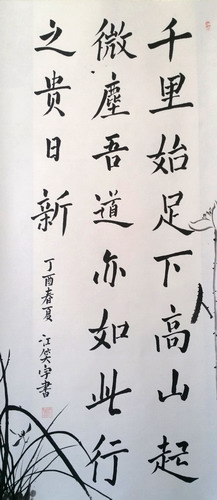 千里始足下高山起
微塵吾道亦如此行
之贵日新
丁酉春夏
江笑宇書